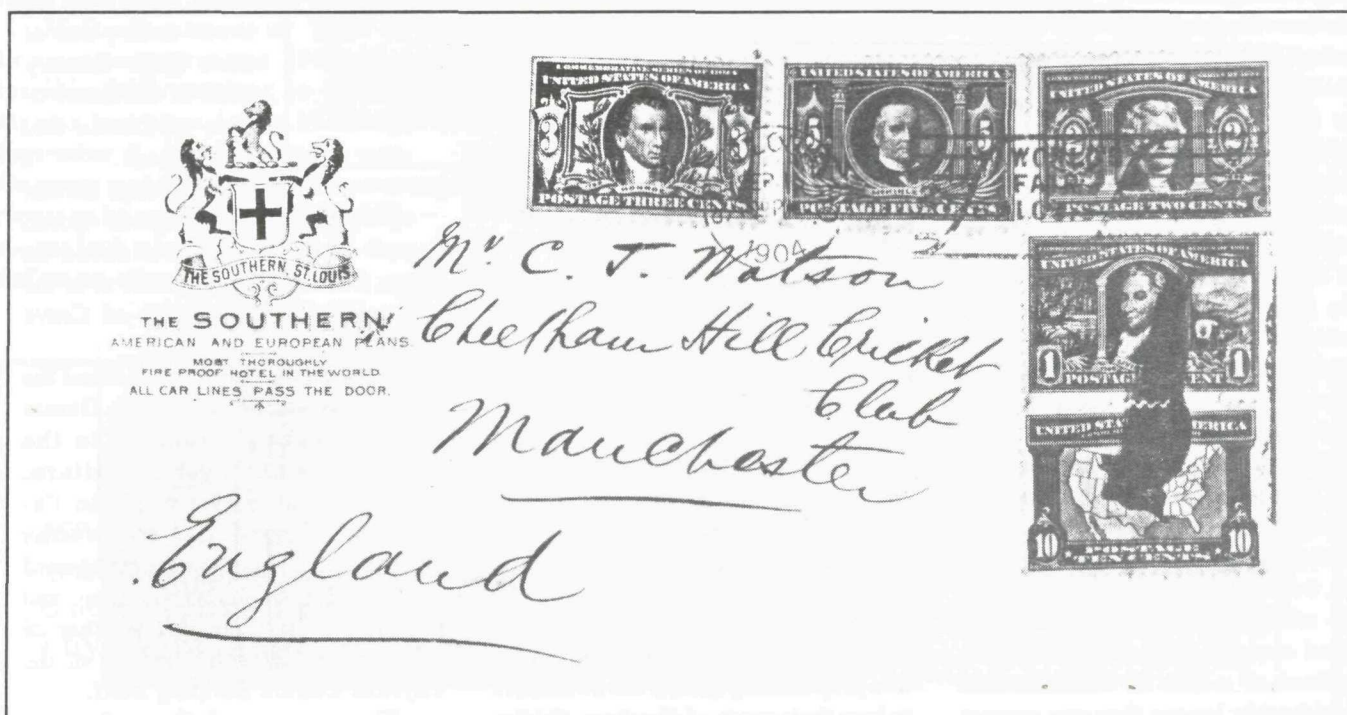 THE SOUTHERN, ST. LOUIS.
THE SOUTHERN
AMERICAN AND EUROPEAN PLANS.
MOST THOROUGHLY
FIRE PROOF HOTEL IN THE WORLD.
ALL CAR LINES PASS THE DOOR.
UNITED STATES OF AMERICA
3 3
POSTAGE THREE CENTS
UNITED STATES OF AMERICA
5 5
POSTAGE FIVE CENTS
UNITED STATES OF AMERICA
2 2
POSTAGE TWO CENTS
WORLD'S
FAIR
1904
UNITED STATES OF AMERICA
1 1
POSTAGE CENT
UNITED STATES AMERICA
10 10
POSTAGE
TEN CENTS
Mr C. J. Watson
Cheetham Hill Cricket
Club
Manchester
England